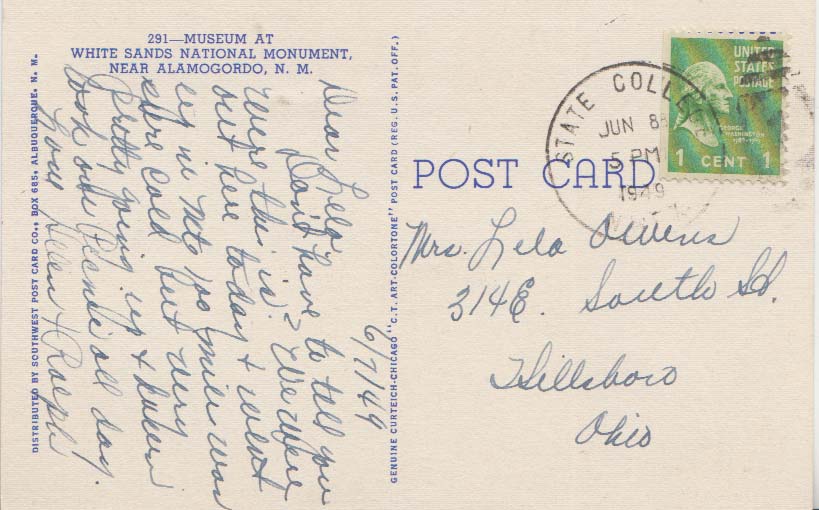 291—MUSEUM AT
WHITE SANDS NATIONAL MONUMENT,
NEAR ALAMOGORDO, N. M.
6/7/49
Dear Lela
Don't have to tell you
where this is. We were
out here today & went
up in Mts 100 miles was
sure cold but very
pretty going up & down
took our picnic all day.
Love Helen & Ralph
DISTRIBUTED BY SOUTHWEST POST CARD CO., BOX 685, ALBUQUERQUE, N. M.
GENUINE CURTEICH-CHICAGO "C.T. ART-COLORTONE" POST CARD (REG. U.S. PAT. OFF.)
POST CARD
STATE COLLEGE
JUN 8
5 PM
1949
UNITED
STATES
POSTAGE
GEORGE
WASHINGTON
1 CENT 1
Mrs. Lela Owens
314 E. South St.
Hillsboro
Ohio